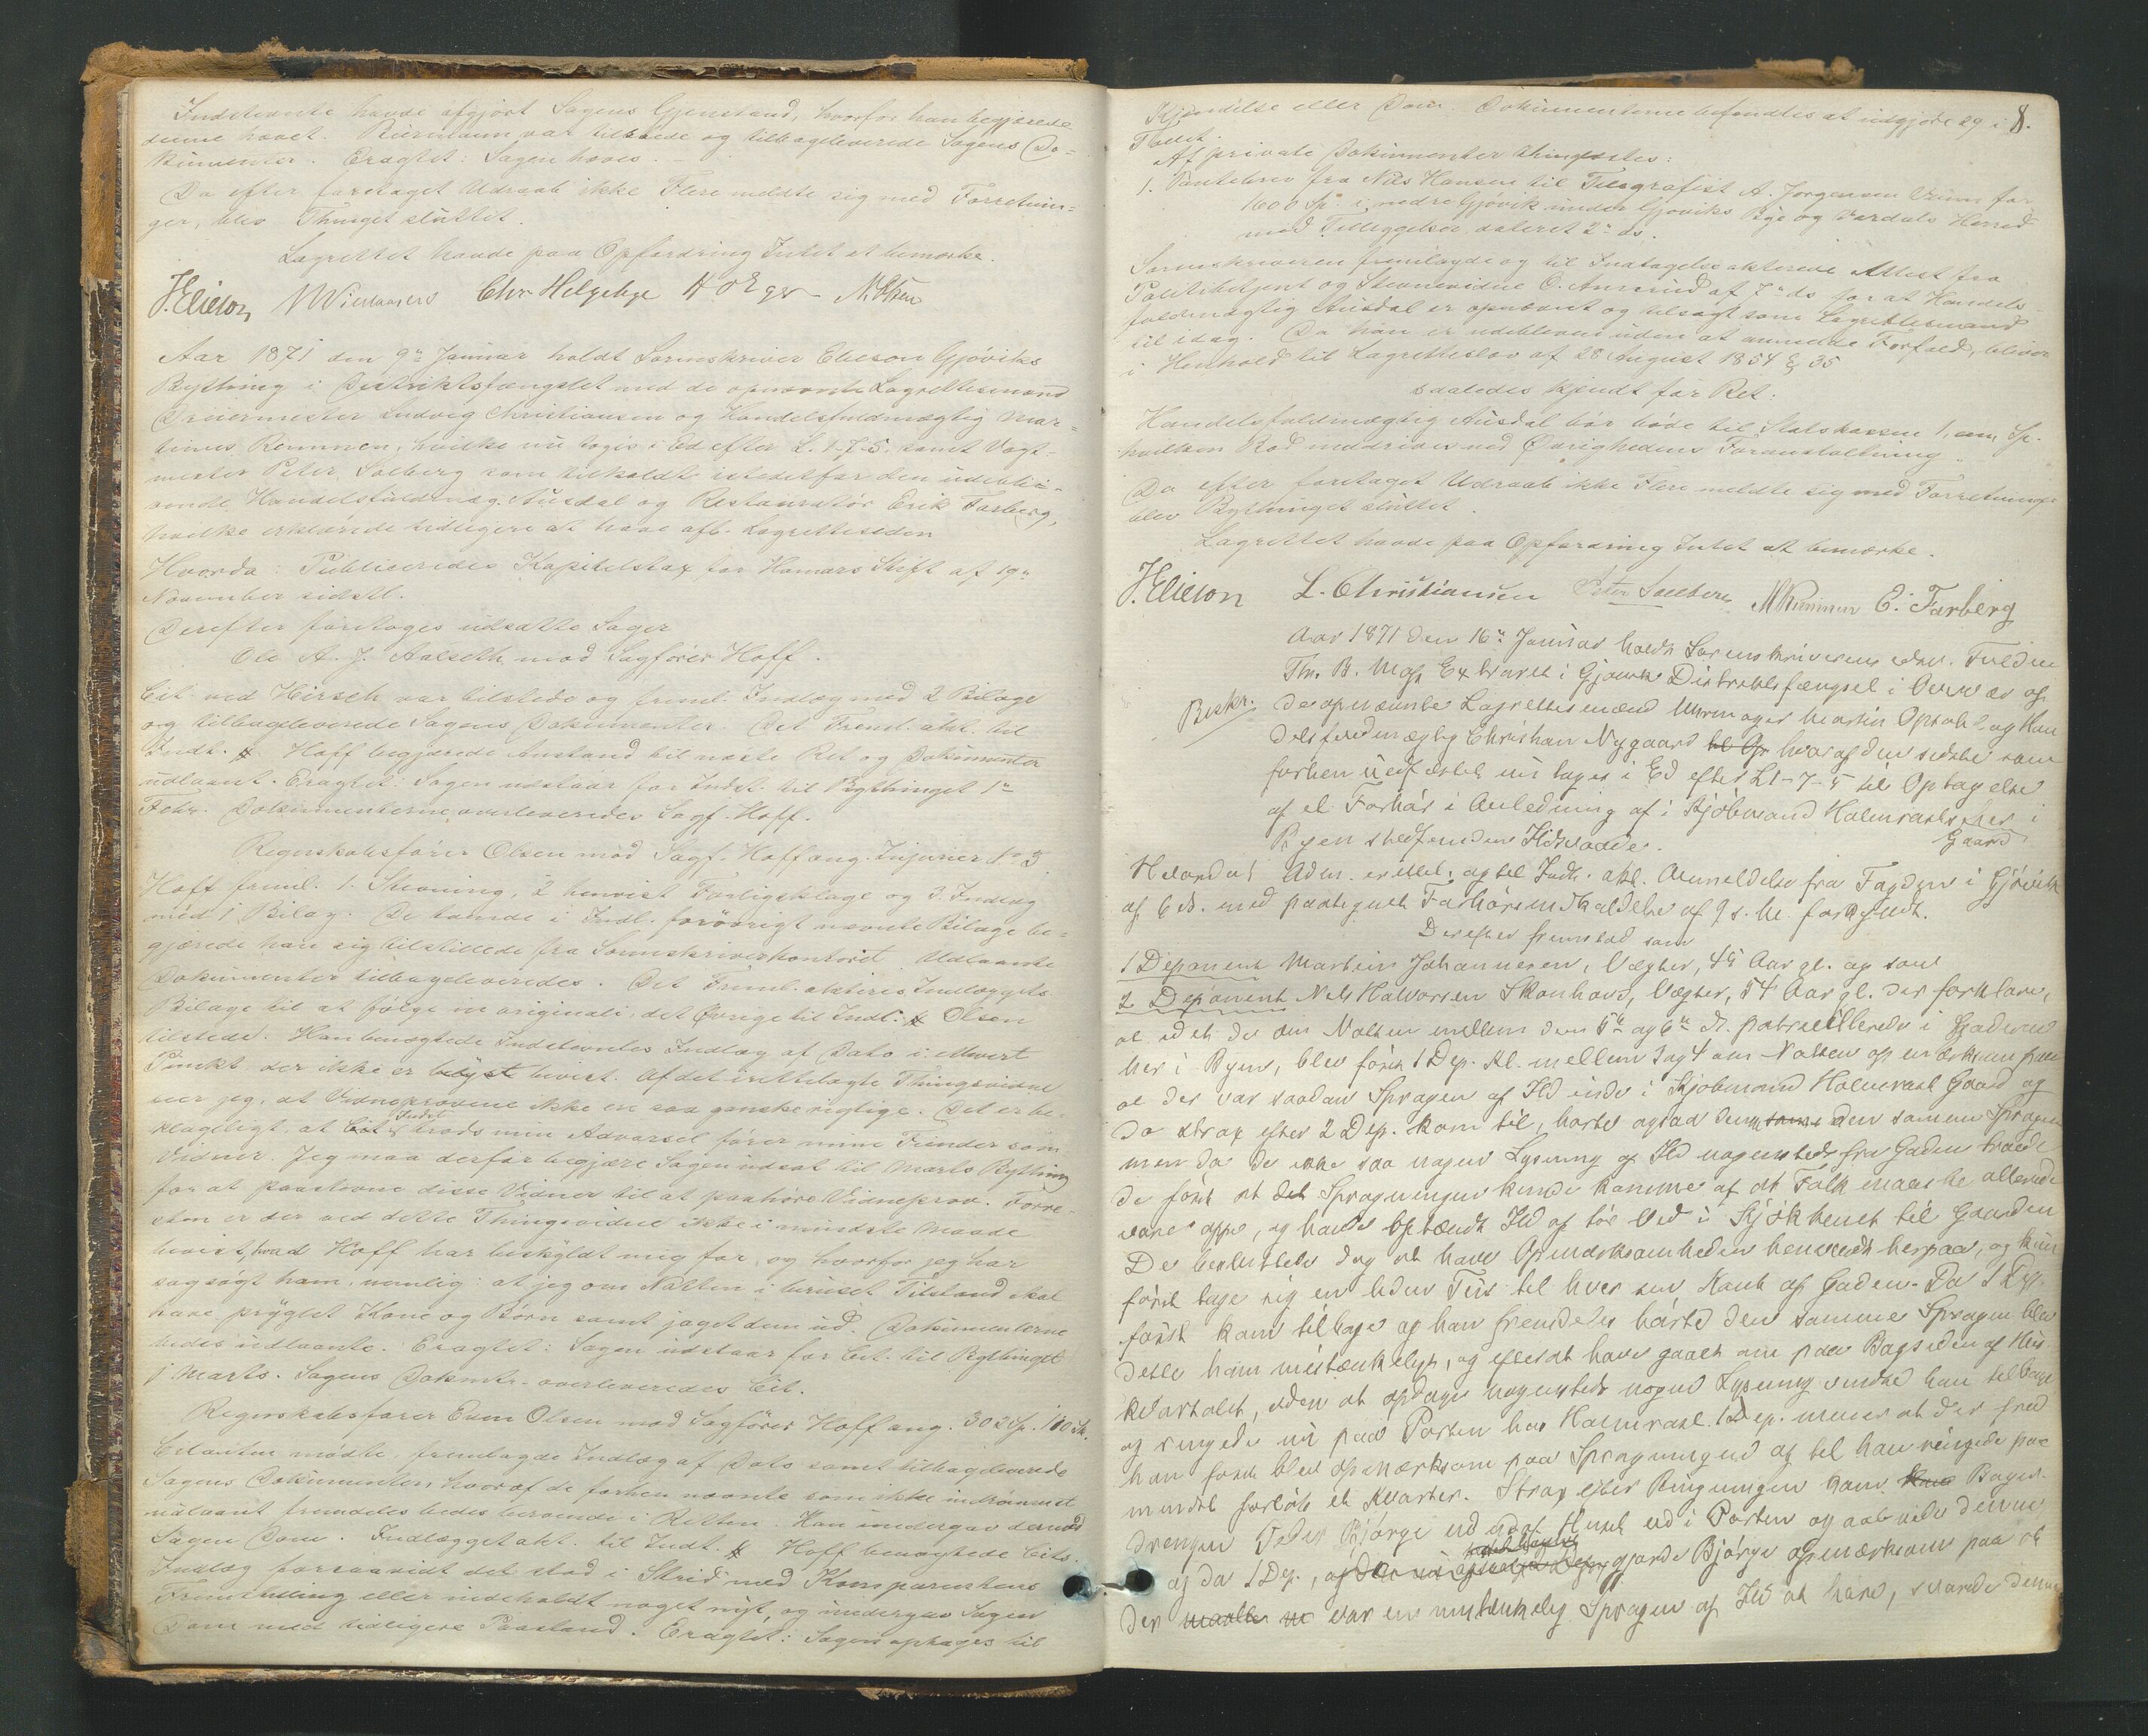 Indstevnte havde afgjort Sagens Gjenstand, hvorfor han begjærede
denne hævet. Biermann var tilstede og tilbageleverede Sagens Do-
kumenter. Eragtet: Sagen hæves.
Da efter foretaget Udraab ikke Flere meldte sig med Forretnin-
ger, blev Thinget sluttet.
Lagrettet havde paa Opfordring Intet at bemærke.
J. Elieson Chr Helgebye
Aar 1871 den 9de Januar holdt Sorenskriver Elieson Gjøviks
Bything i Distriktsfængslet med de opnævnte Lagrettesmænd
Dreiermester Ludvig Christiansen og Handelsfuldmægtig Mar-
tinus Remmen, hvilke nu toges i Ed efter L. 1-7-5. samt Vagt-
mester Peter Solberg som tilkaldt istedetfor den udebli-
vende Handelsfuldmæg. Ausdal og Restauratør Erik Farberg,
hvilke erklærede tidligere at have afl. Lagretteseden
Hvorda: Publiceredes Kapitelstax for Hamars Stift af 19de
November sidstl.
Derefter foretoges udsatte Sager
Ole A. J. Aalseth mod Sagfører Hoff.
Cit. ved Hirsch var tilstede og freml. Indlæg med 2 Bilage
og tilbageleverede Sagens Dokumenter. Det Freml. akt. til
Indt. Hoff begjærede Anstand til næste Ret og Dokumenter
udlaant. Eragtet: Sagen udstaar for Indst. til Bythinget 1ste
Febr. Dokumenterne overleveredes Sagf. Hoff.
Regnskabsfører Olsen mod Sagf. Hoff ang. Injurier No 3
Hoff freml. 1. Stevning, 2 henvist Forligsklage og 3. Indlæg
med 1 Bilag. De samme i Indl. forøvrigt nævnte Bilage be-
gjærede han sig tilstillede fra Sorenskriverkontoret. Udlaante
Dokumenter tilbageleveredes. Det Freml. akteres Indlæggets
Bilage til at følge in originali, det Øvrige til Indt. Olsen
tilstede. Han benægtede Indstevntes Indlæg af Dato i ethvert
Punkt der ikke er bevist. Af det irettelagte Thingsvidne
seer jeg, at Vidneprovene ikke ere saa ganske rigtige. Det er be-
klageligt, at Indst. trods min Advarsel fører mine Fiender som
Vidner. Jeg maa derfor begjære Sagen udsat til Marts Bything
for at paastevne disse Vidner til at paahøre Vidneprov. Forre-
sten er der ved dette Thingsvidne ikke i mindste Maade
bevist, hvad Hoff har beskyldt mig for, og hvorfor jeg har
sagsøgt ham, nemlig: at jeg om Natten i beruset Tilstand skal
have pryglet Kone og Børn samt jaget dem ud. Dokumenterne
bedes udlaante. Eragtet: Sagen udstaar for Cit. til Bythinget
i Marts. Sagens Dokmtr. overleveredes Cit.
Regnskabsfører Even Olsen mod Sagfører Hoff ang. 302 Sp. 100 Sk.
Citanten mødte, fremlagde Indlæg af Dato samt tilbageleverede
Sagens Dokumenter, hvoraf de forhen nævnte som ikke indrømmet
udlaant fremdeles bedes beroende i Retten. Han undergav dermed
Sagen Dom. Indlægget akt. til Indt. Hoff benægtede Cits.
Indlæg forsaavidt det stod i Strid med Komparentens
Fremstilling eller indeholdt noget nyt, og undergav Sagen
Dom med tidligere Paastand. Eragtet: Sagen optages til
8.
Kjendelse eller Dom. Dokumenterne befandtes at udgjøre 29 i
Tallet.
Af private Dokumenter thinglæstes:
1. Pantebrev fra Nils Hansen til Telegrafist A. Jørgensen for
1600 Sp. i nedre Gjøvik under Gjøviks Bye og Vardals Herred
med Tilliggelser, dateret 2de ds.
Sorenskriveren fremlagde og til Indtagelse akterede Attest fra
Politibetjent og Stevnevidne O. Amrud af 7de ds for at Handels-
fuldmægtig Ausdal er opnævnt og tilsagt som Lagrettesmand
til idag. Da han er udebleven uden at anmelde Forfald, bliver
i Henhold til Lagretteslov af 28 August 1854 § 35
saaledes kjendt for Ret:
Handelsfuldmægtig Ausdal bør bøde til Statskassen 1, en, Sp.
hvilken Bod inddrives ved Øvrighedens Foranstaltning.
Da efter foretaget Udraab ikke Flere meldte sig med Forretninger
blev Bythinget sluttet.
Lagrettet havde paa Opfordring Intet at bemærke.
J. Elieson L. Christiansen Peter Soelberg M Remmen E. Farberg
Aar 1871 den 16de Januar holdt Sorenskriverens edsv. Fuldm
Th. B. Moss Extraret i Gjøvik Distriktsfængsel i Overvær af
Beskr.
de opnævnte Lagrettesmænd Uhrmager Martin Opdahl og Han
delsfuldmægtig Christian Nygaard hvoraf den sidste som
forhen ueedfæstet nu toges i Ed efter L 1-7-5 til Optagelse
af et Forhør i Anledning af i Kjøbmand Halmrasts her i
Gaard
Byen stedfunden Ildsvaade.
Hvorda: Adm. erstl. og til Indt. akt. Anmeldelse fra Fogden i Gjøvik
af 6 ds. med paategnet Forhørsindkaldelse af 9 s. M. forkyndt.
Derefter fremstod som
1 Deponent Martin Johannesen, Vægter, 45 Aar gl. og som
2 Deponent Nels Halvorsen Skonhovd, Vægter, 54 Aar gl. der forklare,
at idet de om Natten mellem den 5te og 6te ds. patrouillerede i Gaderne
her i Byen, blev først 1 Dep. Kl. mellem 3 og 4 om Natten opmærksom paa
at der var saadan Spragen af Ild inde i Kjøbmand Halmrast Gaard og
da strax efter 2 Dep. kom til, hørte ogsaa denne den samme Spragen
men da de ikke saa nogen Lysning af Ild nogensteds fra Gaden troede
de først at det Spragningen kunde komme af at Folk maaske allerede
vare oppe, og havde optændt Ild af tør Ved i Kjøkkenet til Gaarden
De besluttede dog at have Opmærksomheden henvendt herpaa, og kun
først tage sig en liden Tur til hver sin Kant af Gaden. Da 1 Dep.
først kom tilbage og han fremdeles hørte den samme Spragen blev
dette ham mistænkeligt, og efterat have gaaet om paa Bagsiden af Hus
kvartalet, uden at opdage nogensteds nogen Lysning vendte han tilbage
og ringede nu paa Porten hos Halmrast. 1 Dep. mener at der fra
han først blev opmærksom paa Spragningen og til han ringede paa
mindst forløb et Kvarter. Strax efter Ringningen kom Bager-
drengen Peder Bjørge ud af Huset ud i Porten og aabnede denne
og da 1 Dep., gjorde Bjørge opmærksom paa at
der var en mistænkelig Spragen af Ild at høre, svarede denne